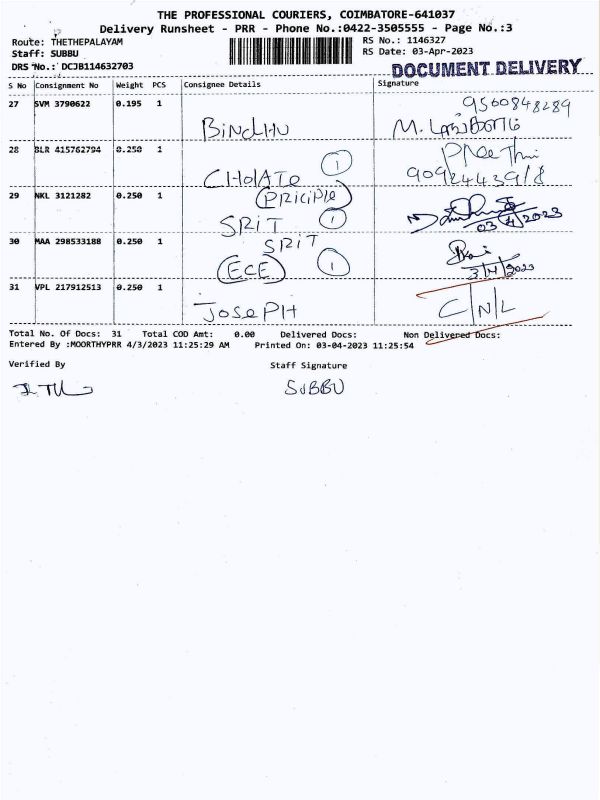 THE PROFESSIONAL COURIERS, COIMBATORE-641037
Delivery Runsheet - PRR - Phone No.:0422-3505555 - Page No.:3
Route: THETHEPALAYAM RS No.: 1146327
Staff: SUBBU RS Date: 03-Apr-2023
DRS No.: DCJB114632703 DOCUMENT DELIVERY
S No Consignment No Weight PCS Consignee Details Signature
27 SVM 3790622 0.195 1 9560848289
BINDHU M.
28 BLR 415762794 0.250 1 1 Preethi
CHOLATE
29 NKL 3121282 0.250 1 (PRICIPLE)
SRIT 1 03/4/2023
30 MAA 298533188 0.250 1 SRIT
(ECE) 1 3/4/2023
31 VPL 217912513 0.250 1 C/N/L
JOSEPH
Total No. Of Docs: 31 Total COD Amt: 0.00 Delivered Docs: Non Delivered Docs:
Entered By :MOORTHYPRR 4/3/2023 11:25:29 AM Printed On: 03-04-2023 11:25:54
Verified By Staff Signature
SUBBU